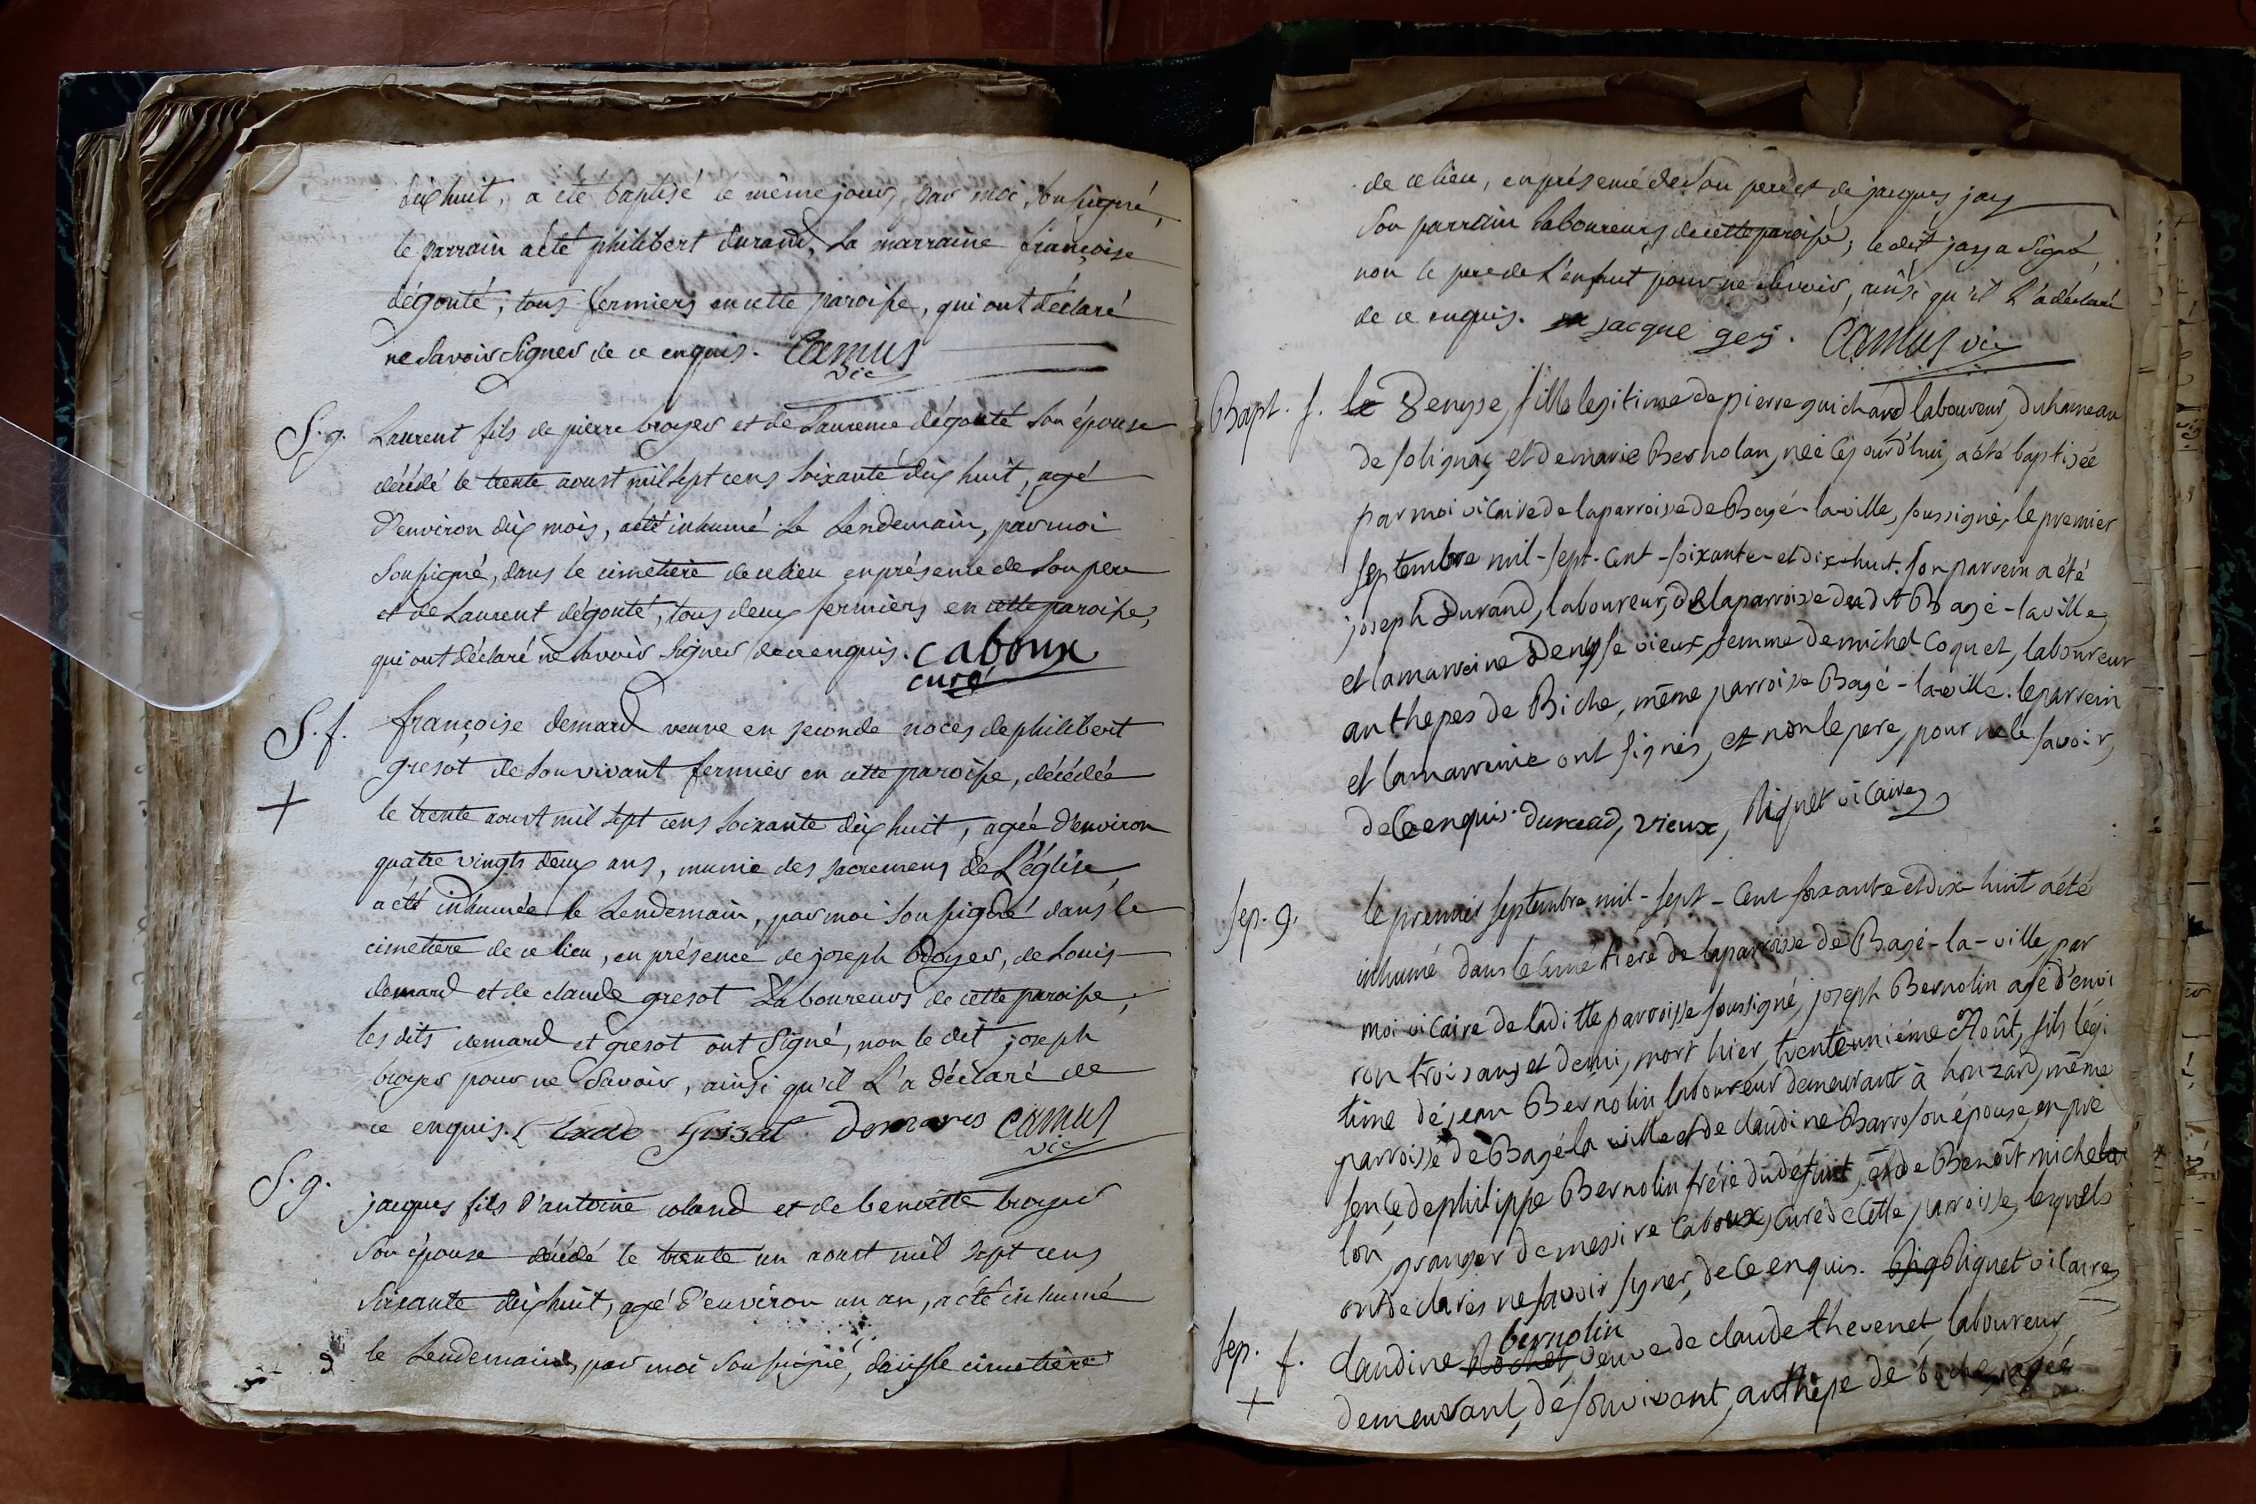 dix huit, a été baptisé le même jour, par moi soussigné,
le parrain a été philibert durand, La marraine françoise
dégouté, tous fermiers en cette paroisse, qui ont déclaré
ne savoir signer de ce enquis. Camus
vic
S. g.
Laurent fils de pierre broyer et de Laurence dégouté son épouse
décédé le trente aoust mil sept cens soixante dix huit, agé
d'environ dix mois, a été inhumé le Lendemain, par moi
soussigné, dans le cimetiere de ce lieu en présence de son pere
et de Laurent dégouté, tous deux fermiers en cette paroisse,
qui ont déclaré ne savoir signer de ce enquis. caboux
curé
S. f.
+
françoise demard veuve en seconde noces de philibert
gresot de son vivant fermier en cette paroisse, décédée
le trente aoust mil sept cens soixante dix huit, agée d'environ
quatre vingts deux ans, munie des sacremens de L'église,
a été inhumée le Lendemain, par moi soussigné dans le
cimetiere de ce lieu, en présence de joseph broyer, de Louis
demard et de claude gresot Laboureurs de cette paroisse,
les dits demard et gresot ont signé, non le dit joseph
broyer pour ne savoir, ainsi qu'il L'a déclaré de
ce enquis. Demares Camus
vic
S. g.
jacques fils d'antoine coland et de benoitte broyer
son épouse décédé le trente un aoust mil sept cens
soixante dix huit, agé d'environ un an, a été inhumé
le Lendemain, par moi soussigné, dans le cimetiere
de ce lieu, en présence de son pere et de jacques jay
son parrain laboureurs de cette paroisse; le dit jay a signé,
non le pere de L'enfant pour ne savoir, ainsi qu'il L'a déclaré
de ce enquis. jacque gey. Camus vic
Bapt. f.
le Denyse, fille legitime de pierre guichard, laboureur, du hameau
de solignac, et de marie Bernolan, née ce jourd'hui, a été baptisée
par moi vicaire de la parroisse de Bagé-la-ville, soussigné, le premier
septembre mil-sept-cent-soixante-et dix-huit. son parrein a été
joseph Durand, laboureur, de la parroisse du dit Bagé-la ville,
et la marreine Denyse vieux, femme de michel Coquet, laboureur
anthepes de Biche, même parroisse Bagé-la-ville. le parrein
et la marreine ont signés, et non le pere, pour ne le savoir,
de ce enquis. durand, vieux, Piquet vicaire
sep. g.
le premier septembre mil-sept-cent soixante et dix-huit a été
inhumé dans le cimetiére de la parroisse de Bagé-la-ville, par
moi vicaire de laditte parroisse soussigné, joseph Bernolin agé d'envi
ron trois ans et demi, mort hier, trente unième Août, fils légi
time de jean Bernolin laboureur demeurant à honzard, même
parroisse de Bagé-la ville et de claudine Barro son épouse, en pré
sence de philippe Bernolin frére du défunt, et de Benoît michela
lon, granger de messire Caboux, curé de cette parroisse, lesquels
ont déclarés ne savoir signer, de ce enquis. Pig Piquet vicaire
sep. f.
+
bernolin
claudine Rochet, veuve de claude thevenet, laboureur
demeurant, de son vivant, anthêpe de biche, agée